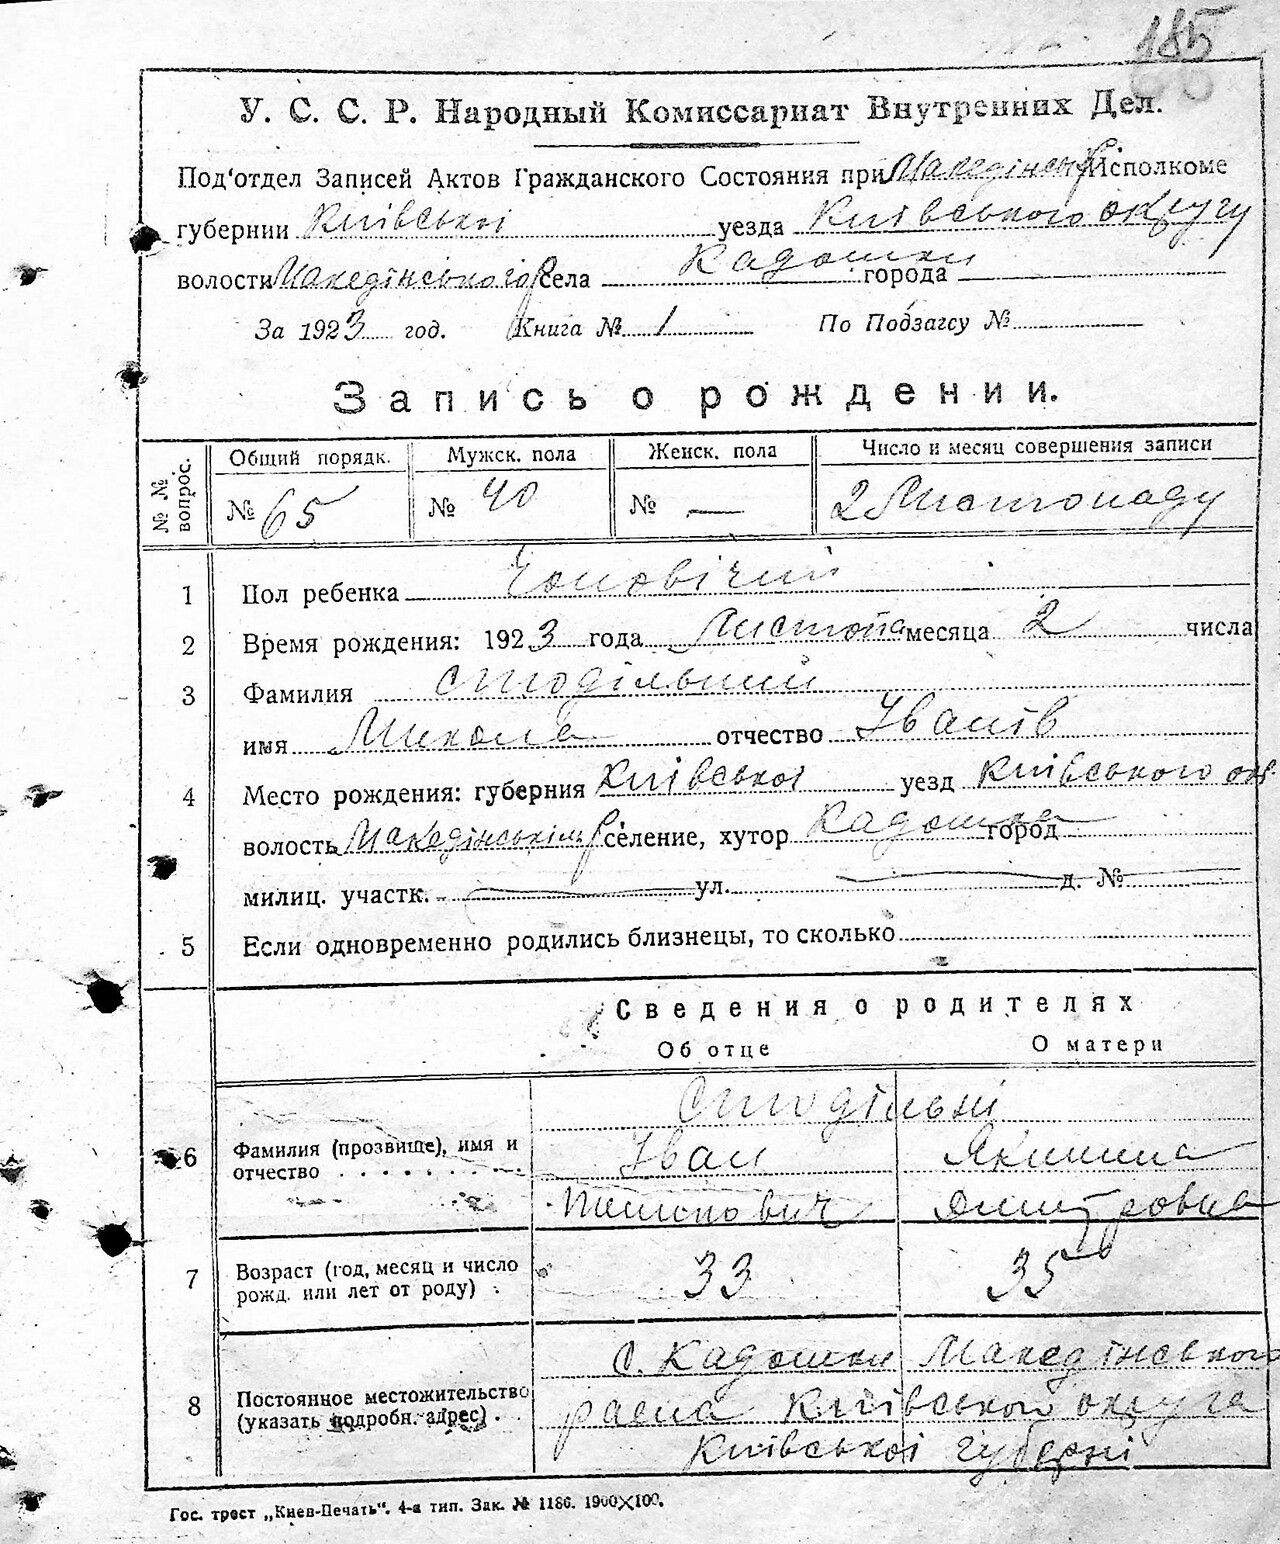 185
У. С. С. Р. Народный Комиссариат Внутренних Дел.
Под'отдел Записей Актов Гражданского Состояния при Македінськ Исполкоме
губернии Київської уезда Київського округу
волости Македінського р села Кадошки города
За 1923 год. Книга № 1 По Подзагсу №
Запись о рождении.
№ № вопрос. Общий порядк. Мужск. пола Женск. пола Число и месяц совершения записи
№ 65 № 40 № — 2 Листопаду
1 Пол ребенка Чоловічий
2 Время рождения: 1923 года Листопа месяца 2 числа
3 Фамилия Стодільний
имя Микола отчество Іванів
4 Место рождения: губерния Київської уезд Київського окр.
волость Македінськім р селение, хутор Кадошка город
милиц. участк. — ул. — д. № —
5 Если одновременно родились близнецы, то сколько
Сведения о родителях
Об отце О матери
Стодільні
6 Фамилия (прозвище), имя и отчество Иван Якилина
Дмитровна
7 Возраст (год, месяц и число рожд. или лет от роду) 33 35
8 Постоянное местожительство (указать подробн. адрес) с. Кадошки Македінського
раена Київського округа
Київської губерні
Гос. трест „Киев-Печать“. 4-я тип. Зак. № 1186. 1900×100.